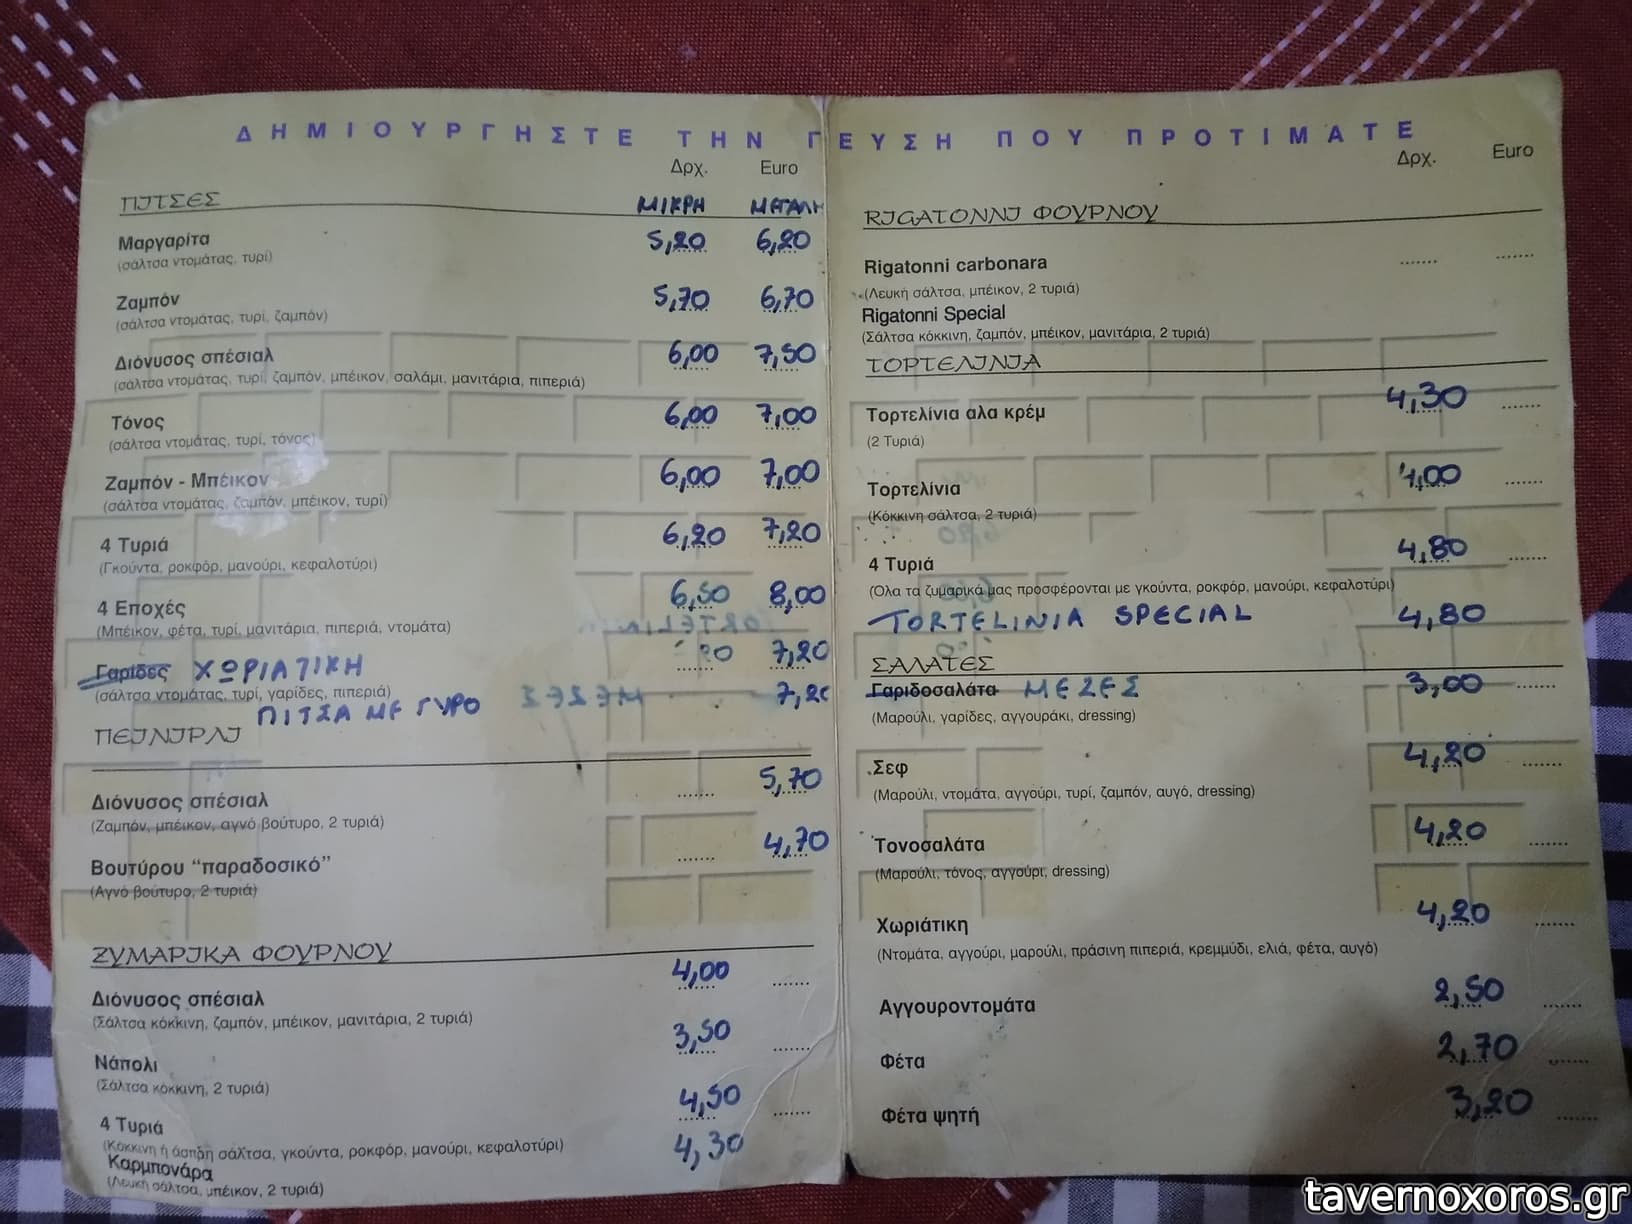 ΔΗΜΙΟΥΡΓΗΣΤΕ ΤΗΝ ΓΕΥΣΗ ΠΟΥ ΠΡΟΤΙΜΑΤΕ
Δρχ. Euro
ΠΙΤΣΕΣ ΜΙΚΡΗ ΜΕΓΑΛΗ
Μαργαρίτα 5,20 6,20
(σάλτσα ντομάτας, τυρί)
Ζαμπόν 5,70 6,70
(σάλτσα ντομάτας, τυρί, ζαμπόν)
Διόνυσος σπέσιαλ 6,00 7,50
(σάλτσα ντομάτας, τυρί, ζαμπόν, μπέικον, σαλάμι, μανιτάρια, πιπεριά)
Τόνος 6,00 7,00
(σάλτσα ντομάτας, τυρί, τόνος)
Ζαμπόν - Μπέικον 6,00 7,00
(σάλτσα ντομάτας, ζαμπόν, μπέικον, τυρί)
4 Τυριά 6,20 7,20
(Γκούντα, ροκφόρ, μανούρι, κεφαλοτύρι)
4 Εποχές 6,50 8,00
(Μπέικον, φέτα, τυρί, μανιτάρια, πιπεριά, ντομάτα)
Γαρίδες ΧΩΡΙΑΤΙΚΗ 7,20
(σάλτσα ντομάτας, τυρί, γαρίδες, πιπεριά)
ΠΙΤΣΑ ΜΕ ΓΥΡΟ 7,20
ΠΕΙΝΙΡΛΙ
Διόνυσος σπέσιαλ ....... 5,70
(Ζαμπόν, μπέικον, αγνό βούτυρο, 2 τυριά)
Βουτύρου “παραδοσικό” ....... 4,70
(Αγνό βούτυρο, 2 τυριά)
ΖΥΜΑΡΙΚΑ ΦΟΥΡΝΟΥ
Διόνυσος σπέσιαλ 4,00 .......
(Σάλτσα κόκκινη, ζαμπόν, μπέικον, μανιτάρια, 2 τυριά)
Νάπολι 3,50 .......
(Σάλτσα κόκκινη, 2 τυριά)
4 Τυριά 4,50 .......
(Κόκκινη ή άσπρη σάλτσα, γκούντα, ροκφόρ, μανούρι, κεφαλοτύρι)
Καρμπονάρα 4,30
(Λευκή σάλτσα, μπέικον, 2 τυριά)
Δρχ. Euro
RIGATONNI ΦΟΥΡΝΟΥ
Rigatonni carbonara ....... .......
(Λευκή σάλτσα, μπέικον, 2 τυριά)
Rigatonni Special
(Σάλτσα κόκκινη, ζαμπόν, μπέικον, μανιτάρια, 2 τυριά)
ΤΟΡΤΕΛΙΝΙΑ
Τορτελίνια αλα κρέμ 4,30 .......
(2 Τυριά)
Τορτελίνια 4,00 .......
(Κόκκινη σάλτσα, 2 τυριά)
4 Τυριά 4,80 .......
(Ολα τα ζυμαρικά μας προσφέρονται με γκούντα, ροκφόρ, μανούρι, κεφαλοτύρι)
TORTELINIA SPECIAL 4,80
ΣΑΛΑΤΕΣ
Γαριδοσαλάτα ΜΕΖΕΣ 3,00 .......
(Μαρούλι, γαρίδες, αγγουράκι, dressing)
Σεφ 4,20 .......
(Μαρούλι, ντομάτα, αγγούρι, τυρί, ζαμπόν, αυγό, dressing)
Τονοσαλάτα 4,20 .......
(Μαρούλι, τόνος, αγγούρι, dressing)
Χωριάτικη 4,20 .......
(Ντομάτα, αγγούρι, μαρούλι, πράσινη πιπεριά, κρεμμύδι, ελιά, φέτα, αυγό)
Αγγουροντομάτα 2,50 .......
Φέτα 2,70 .......
Φέτα ψητή 3,20 .......
tavernoxoros.gr